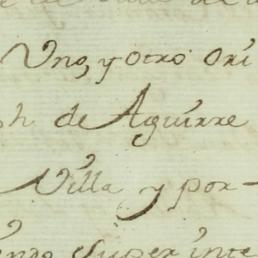 Uno, y otro Ori
h de Aguirre
Villa y por-
endo Superinte